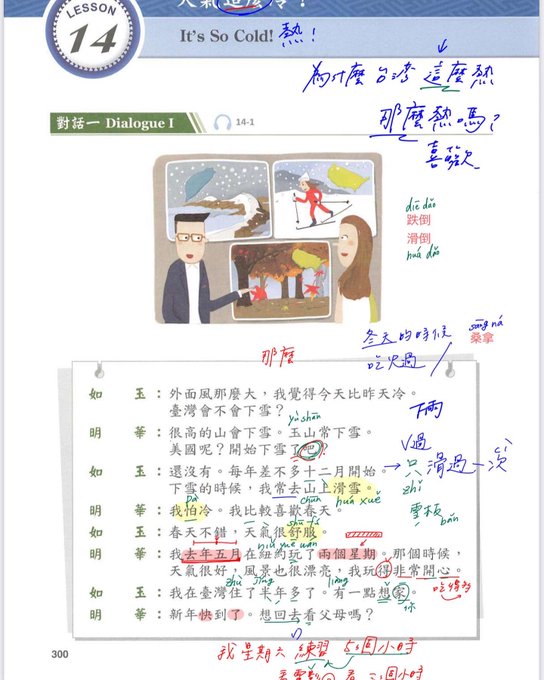 LESSON
14
天氣這麼冷！
It's So Cold! 熱！
為什麼台灣這麼熱
那麼熱嗎？
喜歡
對話一 Dialogue I
14-1
diē dǎo
跌倒
滑倒
huá dǎo
冬天的時候
吃火鍋
sāng ná
桑拿
那麼
如玉：外面風那麼大，我覺得今天比昨天冷。
臺灣會不會下雪？
下雨
yù shān
明華：很高的山會下雪。玉山常下雪。
美國呢？開始下雪了吧？
√過
如玉：還沒有。每年差不多十二月開始。
→只滑過一次
cì
zhǐ
下雪的時候，我常去山上滑雪。
pà
chūn
huá xuě
雪板
bǎn
明華：我怕冷。我比較喜歡春天。
shū fú
如玉：春天不錯，天氣很舒服。
niǔ yuē wán
明華：我去年五月在紐約玩了兩個星期。那個時候，
天氣很好，風景也很漂亮，我玩得非常開心。
zhù
jǐng
liàng
吃得很
如玉：我在臺灣住了半年多了。有一點想家。
你
明華：新年快到了。想回去看父母嗎？
300
我星期六 練習 5個小時
看電影
看
個小時